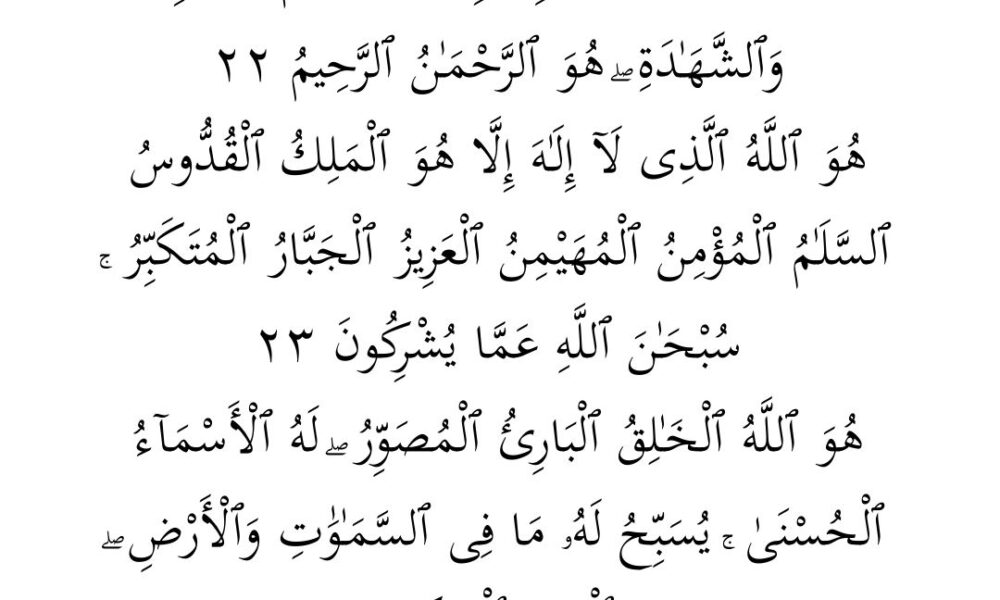 وَٱلشَّهَـٰدَةِ ۖ هُوَ ٱلرَّحْمَـٰنُ ٱلرَّحِيمُ ٢٢
هُوَ ٱللَّهُ ٱلَّذِى لَآ إِلَـٰهَ إِلَّا هُوَ ٱلْمَلِكُ ٱلْقُدُّوسُ
ٱلسَّلَـٰمُ ٱلْمُؤْمِنُ ٱلْمُهَيْمِنُ ٱلْعَزِيزُ ٱلْجَبَّارُ ٱلْمُتَكَبِّرُ ۚ
سُبْحَـٰنَ ٱللَّهِ عَمَّا يُشْرِكُونَ ٢٣
هُوَ ٱللَّهُ ٱلْخَـٰلِقُ ٱلْبَارِئُ ٱلْمُصَوِّرُ ۖ لَهُ ٱلْأَسْمَآءُ
ٱلْحُسْنَىٰ ۚ يُسَبِّحُ لَهُۥ مَا فِى ٱلسَّمَـٰوَٰتِ وَٱلْأَرْضِ ۖ